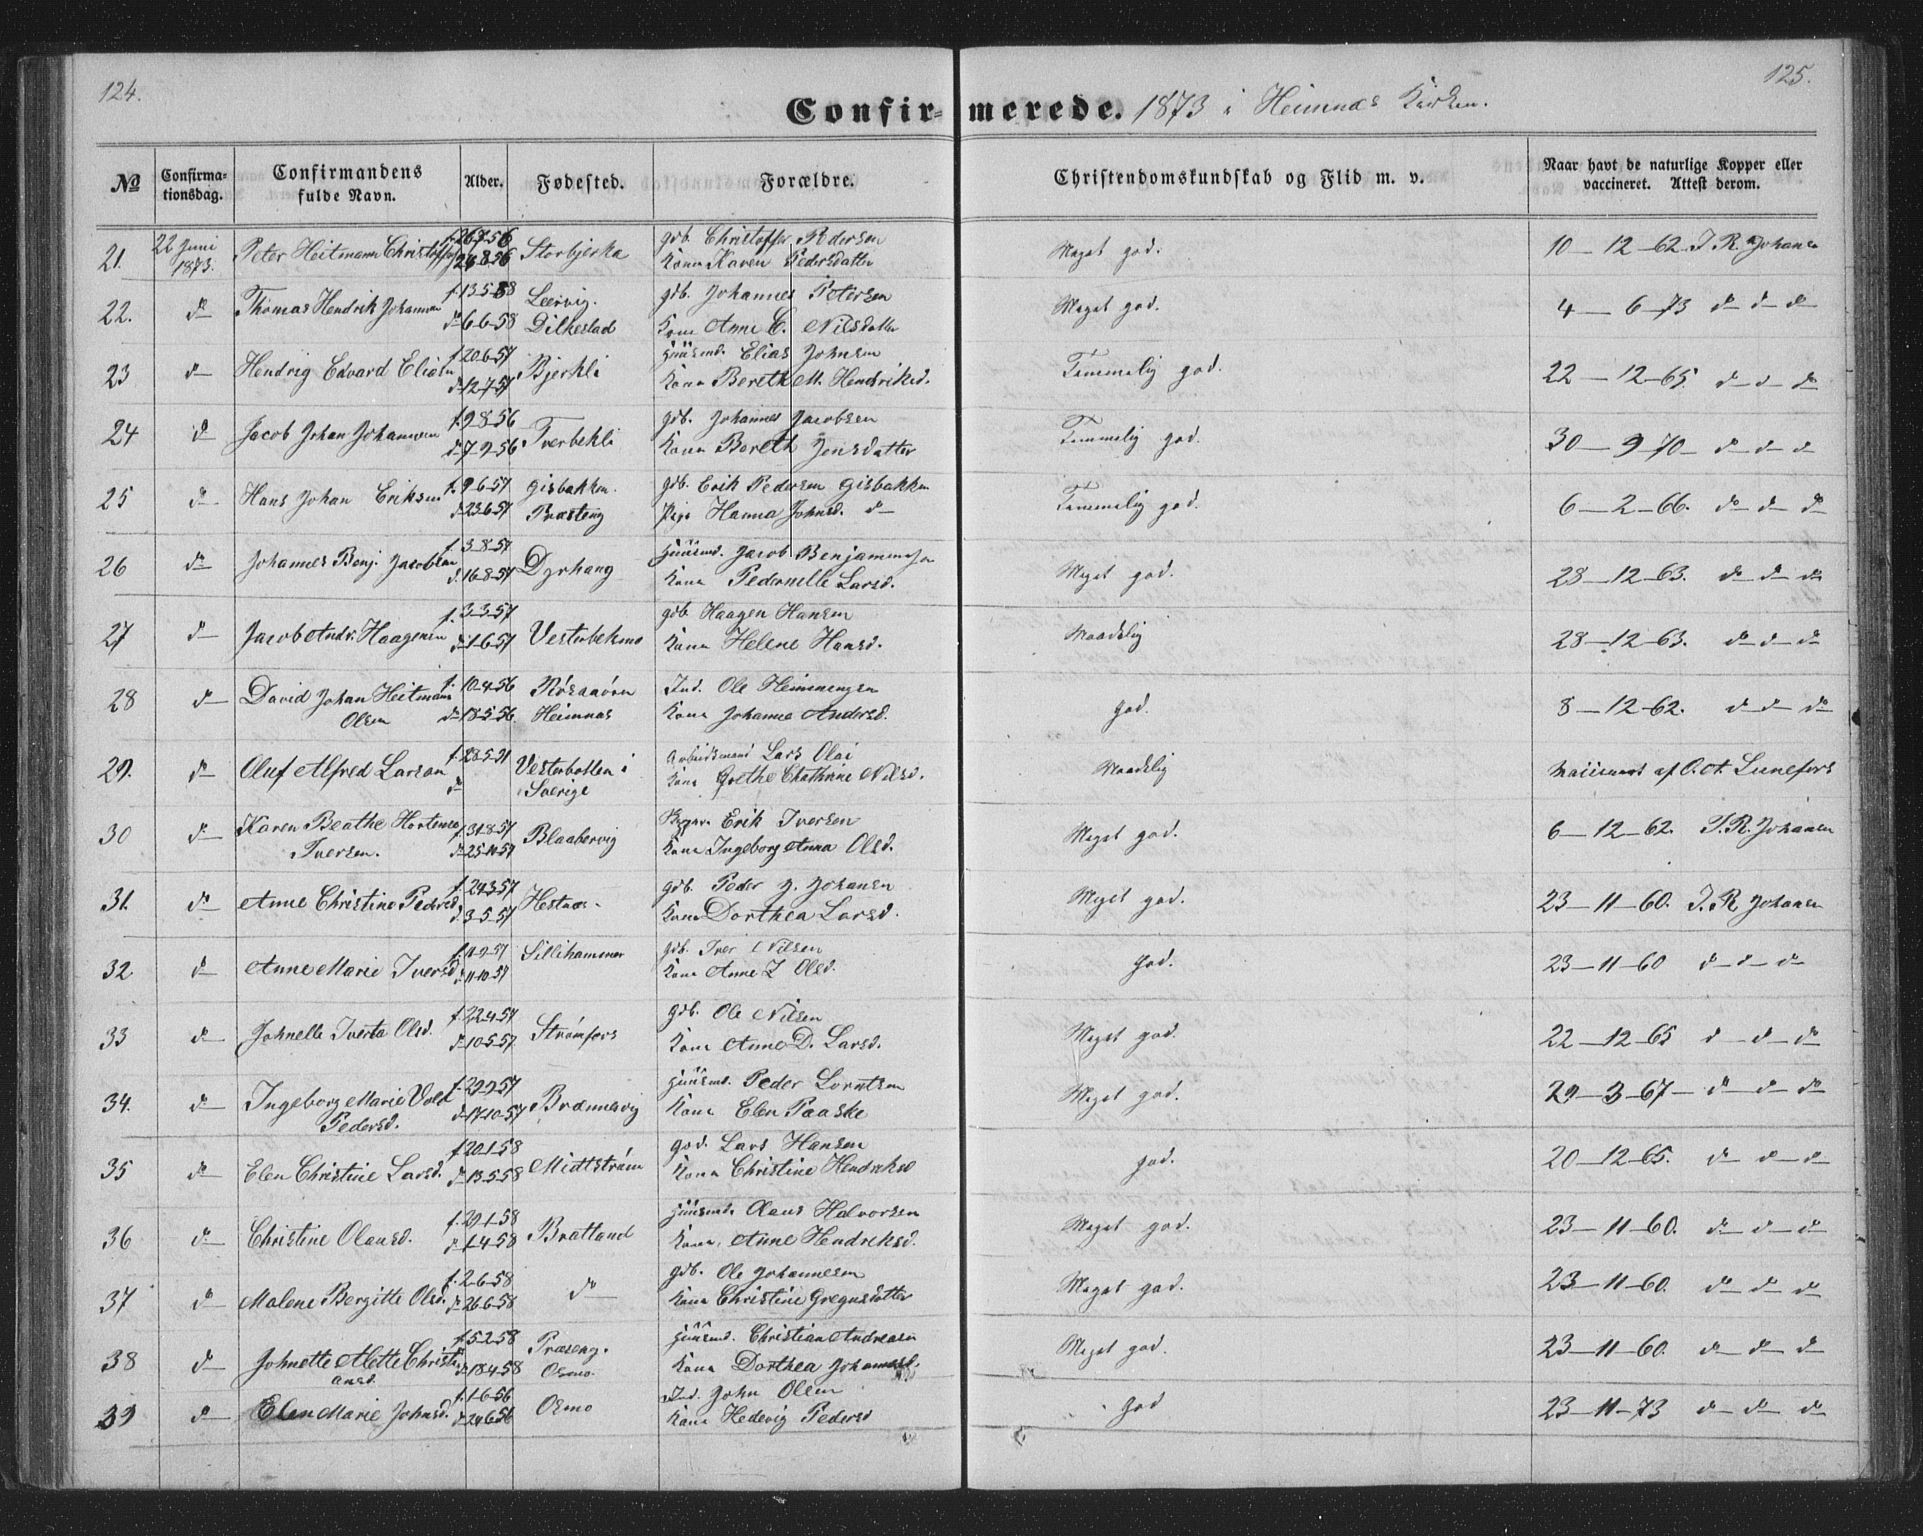 124.
125.
Confir- merede. 1873 i Heimnæs Kirken.
No Confirma-tionsdag. Confirmandens fulde Navn. Alder. Fødested. Forældre. Christendomskundskab og Flid m. v. Naar havt de naturlige Kopper eller vaccineret. Attest derom.
21. 22 Juni 1873. Peter Heitmann Christoffers f. 26-7-56 24-8-56 Storbjerka gdb. Christoffer Pedersen Kone Karen Pedersdatter Meget god. 10-12-62 J. R. Johansen
22. do Thomas Hendrik Johannesen f. 13-5-58 do 6-6-58 Leervig Dilkestad gdb. Johannes Petersen Kone Anne C. Nilsdatter Meget god. 4-6-73 do do do
23 do Hendrig Edvard Eliasen f. 20-6-57 do 12-7-57 Bjerkli Huusmd. Elias Johnsen Kone Bereth M. Hendriksd. Temmelig god. 22-12-65. do do do
24 do Jacob Johan Johannesen f. 9-8-56 do 7-9-56 Tverbekli gdb. Johannes Jacobsen Kone Bereth Jonsdatter Temmelig god. 30-9-70 do do do
25 do Hans Johan Eriksen f. 9-6-57 do 23-6-57 Gisbakken. Præsteng gdb. Erik Pedersen Gisbakken Pige Hanna Johnsd. do Temmelig god. 6-2-66. do do do
26 do Johannes Benj. Jacobsen f. 3-8-57 d. 16-8-57 Dyrhaug Huusmd. Jacob Benjaminsen Kone Pedernelle Larsd. Meget god. 28-12-63. do do do
27 do Jacob Andr. Haagensen f. 3-3-57 do 1-6-57 Vesterbekmo gdb. Haagen Hansen Kone Helene Hansd. Maadelig 28-12-63. do do do
28 do David Johan Heitman Olsen f. 10-4-56 do 18-5-56. Røsaaøren Heimnæs Ind. Ole Hemmingsen Kone Johanna Andersd. god. 8-12-62. do do do
29. do Oluf Alfred Larson f. 28-5-51 do Vesterbotten i Sverige Arbeidsmand Lars Olai Kone Grethe Cathrine Nilsd. Maadelig Vaccineret af C. A. Lunefors
30 do Karen Beathe Hortense Iversen. f. 31-8-57 do 25-10-57 Blaabærvig Erik Iversen Kone Ingeborg Anna Olsd. Meget god. 6-12-62. J. R. Johansen
31. do Anne Christine Pedersd. f. 29-3-57 d. 3-5-57 Hestnæs gdb. Peder J. Johansen Kone Dorthea Larsd. Meget god. 23-11-60. J. R. Johansen
32 do Anne Marie Iversd. 11-10-57 Sillihammer gdb. Iver Nilsen Kone Anne Z Olsd. god. 23-11-60 do do do
33 do Johnelle Iverta Olsd. f. 22-4-57 do 10-5-57 Strømfors gdb. Ole Nilsen Kone Anne D. Larsd. Meget god. 22-12-65 do do do
34. do Ingeborg Marie Vold Pedersd. f. 29-9-57 do 17-10-57 Brennesvig Huusmd. Peder Lorntsen Kone Elen Paaske Meget god. 29-3-67 do do do
35 do Elen Christine Larsd. f. 20-1-58 do 13-5-58 Midtstrøm gdb. Lars Hansen Kone Christine Hendriksd god. 20-12-65. do do do
36 do Christine Olausd. f. 29-1-58 do 1-4-58 Bratland Huusmd. Olaus Halvorsen Kone Anne Hendriksd. Meget god. 23-11-60. do do do
37 do Malene Bergitte Olsd. f. 2-6-58 do 26-6-58 do gdb. Ole Johannesen Kone Christine Gregusdatter Meget god. 23-11-60. do do do
38 do Johnette Mette Christi ansd. f. 5-2-58 do 18-4-58 Præseng. Osmo. Huusmd. Christian Andreasen Kone Dorthea Johannesd. Meget god. 23-11-60. do do do
39 do Elen Marie Johnsd. f. 1-6-56 do 24-6-56 Osmo Ind. John Olsen Kone Hedevig Pedersd god 23-11-73 do do do